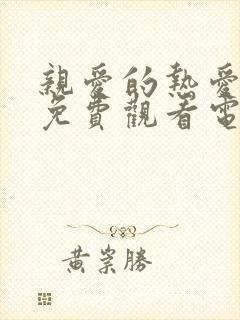 親愛的熱愛
免費觀看電
黃崇勝